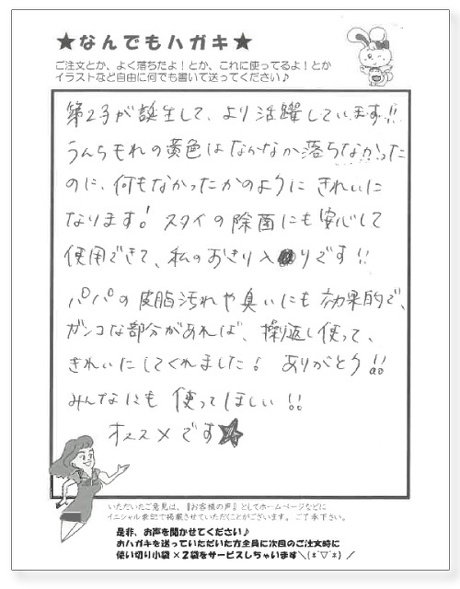 ★なんでもハガキ★
ご注文とか、よく落ちたよ！とか、これに使ってるよ！とか
イラストなど自由に何でも書いて送ってください♪
第2子が誕生して、より活躍しています!!
うんちもれの黄色はなかなか落ちなかった
のに、何もなかったかのように きれいに
なります! スタイの除菌にも安心して
使用できて、私のお気り入りです!!
パパの皮脂汚れや臭いにも効果的で、
ガンコな部分があれば、繰り返し使って、
きれいにしてくれました! ありがとう!!
みんなにも 使ってほしい!!
オススメです★
いただいたご意見は、『お客様の声』としてホームページなどに
イニシャル表記で掲載させていただくことがございます。ご了承下さい。
是非、お声を聞かせてください♪
おハガキを送っていただいた方全員に次回のご注文時に
使い切り小袋×2袋をサービスしちゃいます＼(*ﾟ▽ﾟ*)／